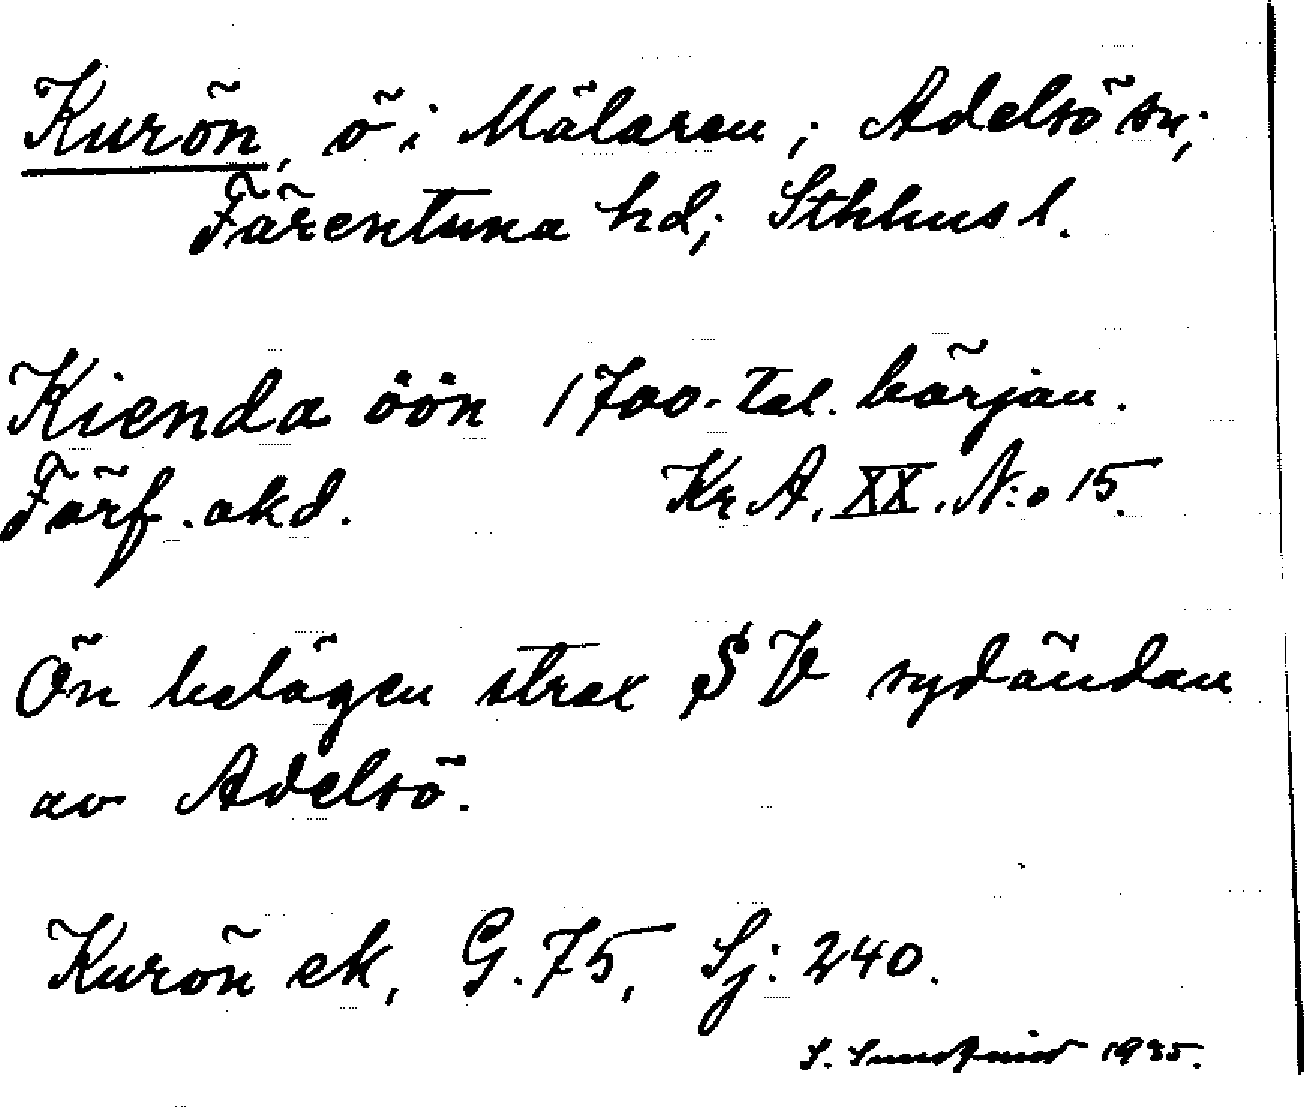 Kurön, ö i Mälaren; Adelsö sn;
Färentuna hd; Sthlms l.
Kienda öön 1700-tal. början.
Förf. okd. Kr. A. XX. N:o 15.
Ön belägen strax SV sydändan
av Adelsö.
Kurön ek, G. 75, Sj: 240.
S. 1935.